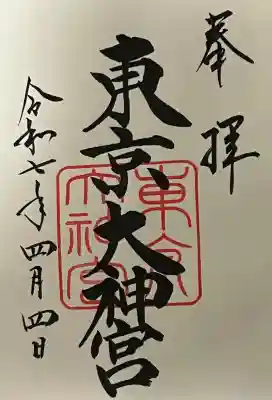 奉拝
東京大神宮
令和七年四月四日
東京大神宮